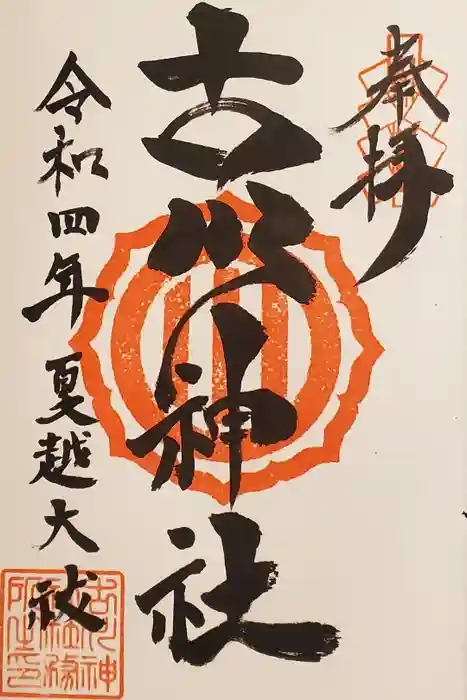 奉拝
古川神社
令和四年夏越大祓